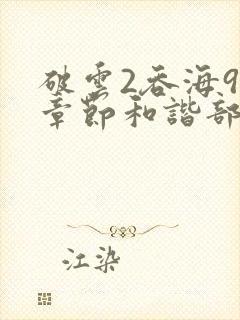 破雲2吞海9
章節和諧部
江染